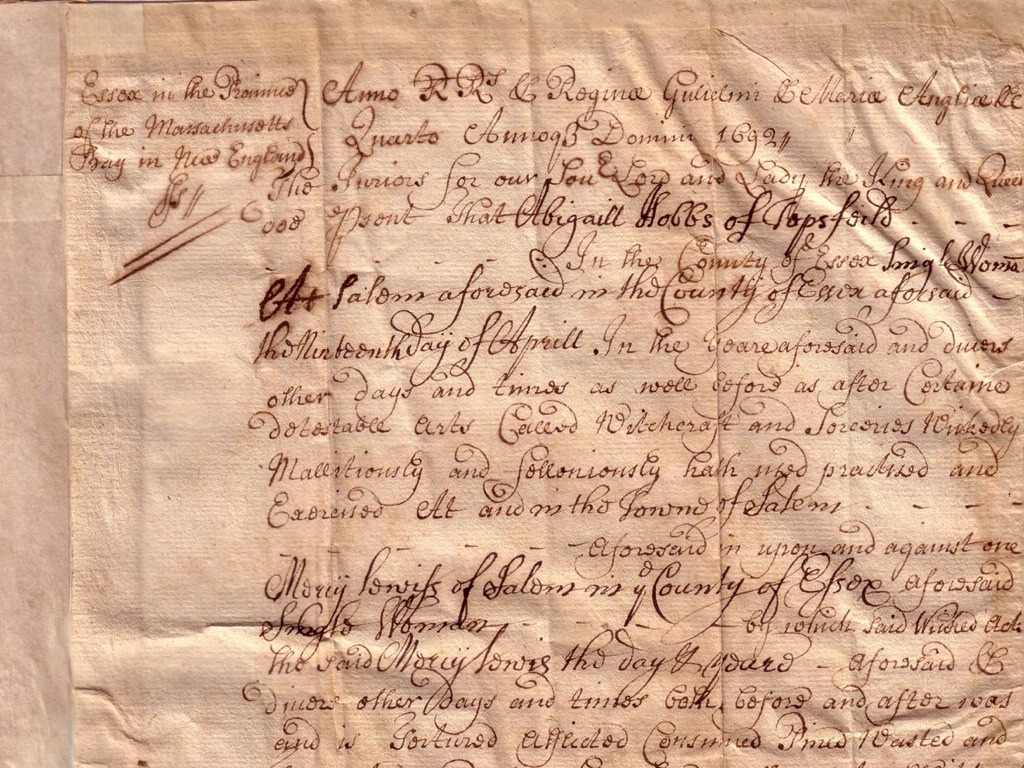 Essex in the Province
of the Massachusetts
Bay in New England
ss//
Anno R Rs & Reginæ Gulielmi & Mariæ Angliæ &c
Quarto Annoqȝ Domini 1692//
The Juriors for our Soue Lord and Lady the King and Queen
doe psent That Abigaill Hobbs of Topsfeild - - -
In the County of Essex Single Woman
At Salem aforesaid in the County of Essex aforsaid -
the Ninteenth Day of Aprill In the Yeare aforesaid and divers
other days and times as well before as after Certaine
detestable Arts Called Witchcraft and Sorceries Wickedly
Mallitiously and felloniously hath used practised and
Exercised At and in the Towne of Salem - - -
- - - aforesaid in upon and against one
Mercy Lewiss of Salem in ye County of Essex aforesaid
Single Woman - - - by which said Wicked Acts
the said Mercy Lewis the day & yeare - aforesaid &
divers other days and times both before and after was
and is Tortured Aflicted Consumed Pined Wasted and